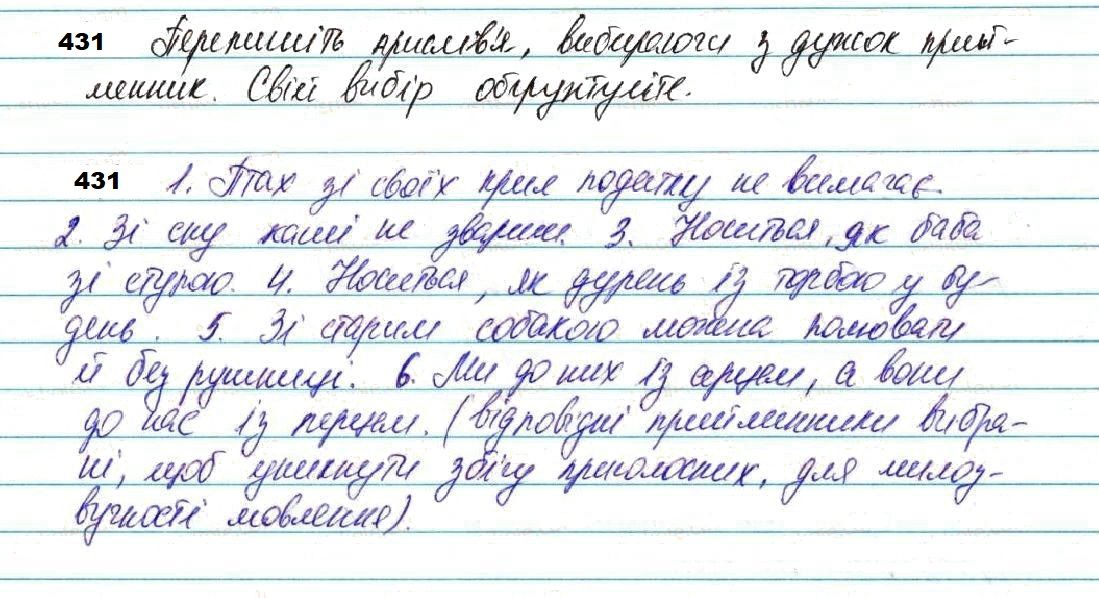 431 Перепишіть прислів'я, вибираючи з дужок прий-
менник. Свій вибір обґрунтуйте.
431 1. Птах зі своїх крил податку не вимагає.
2. Зі сну каші не звариш. 3. Носиться, як баба
зі ступою. 4. Носиться, як дурень із торбою у бу-
день. 5. Зі старим собакою можна полювати
й без рушниці. 6. Ми до них із серцем, а вони
до нас із перцем. (відповідні прийменники вибра-
ні, щоб уникнути збігу приголосних, для милоз-
вучності мовлення).